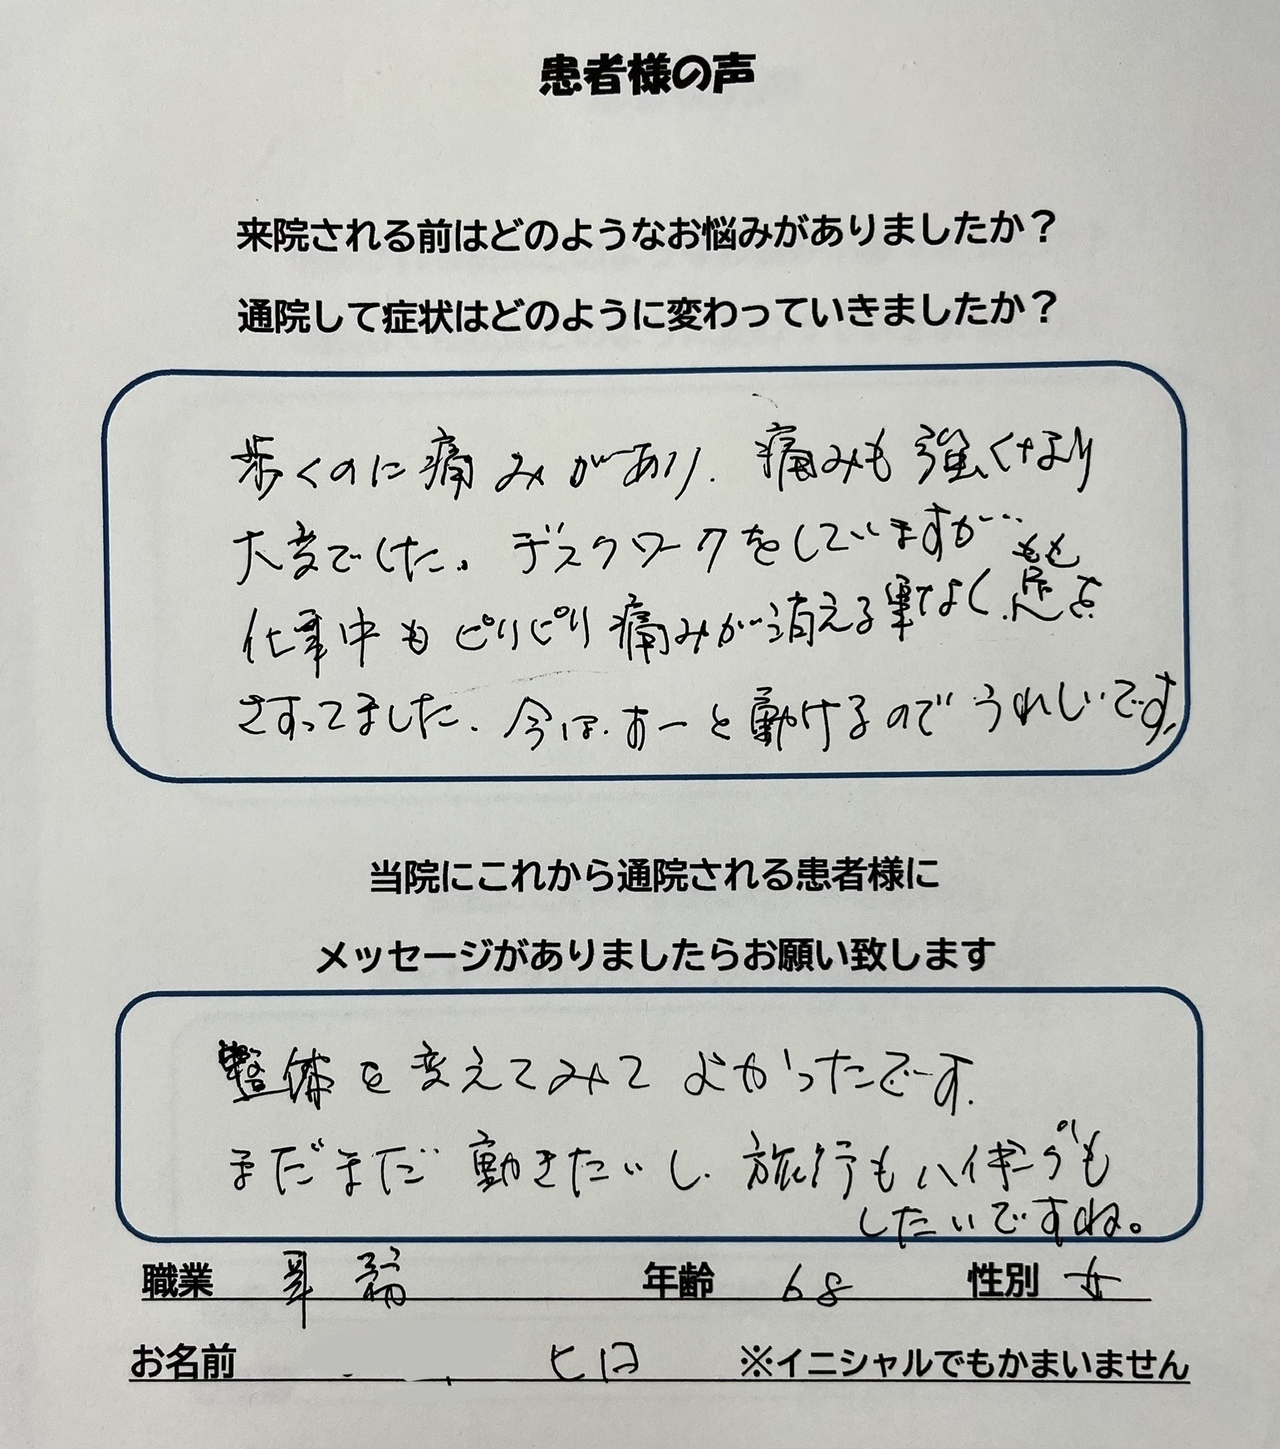 患者様の声
来院される前はどのようなお悩みがありましたか？
通院して症状はどのように変わっていきましたか？
歩くのに痛みがあり、痛みも強くなり
大変でした。デスクワークをしていますが…
仕事中もピリピリ痛みが消える事なく、足ももを
さすってました。今は、すーと動けるのでうれしいです。
当院にこれから通院される患者様に
メッセージがありましたらお願い致します
整体を変えてみてよかったです。
まだまだ動きたいし、旅行もハイキングも
したいですね。
職業 事務 年齢 68 性別 女
お名前 ※イニシャルでもかまいません